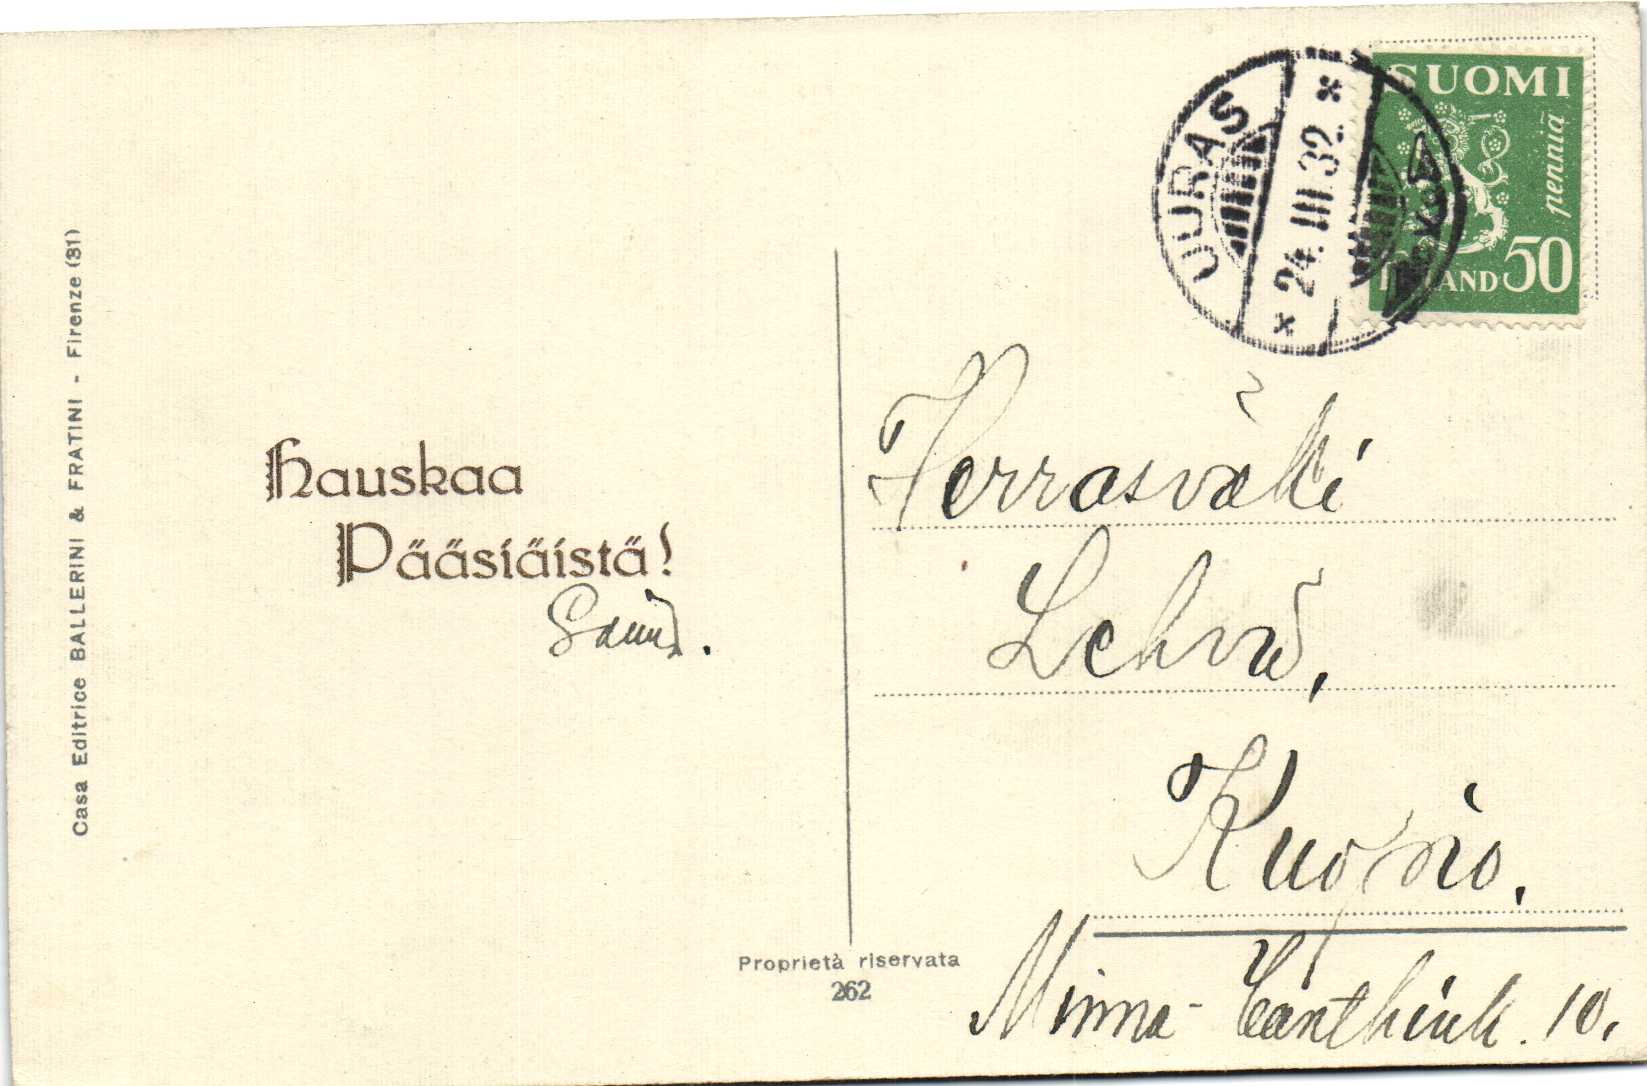 SUOMI
penniä
50
FINLAND
UURAS
24.III.32.
Casa Editrice BALLERINI & FRATINI - Firenze (31)
Hauskaa
Pääsiäistä!
Herrasväki
Kuopio.
Minna-Canthink. 10.
Proprietà riservata
262